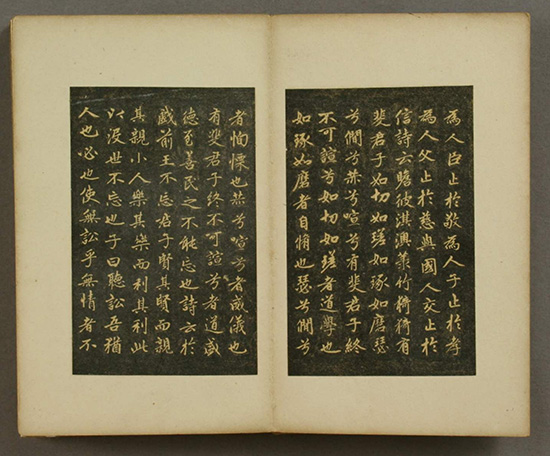 為人臣止於敬為人子止於孝
為人父止於慈與國人交止於
信詩云瞻彼淇澳菉竹猗猗有
斐君子如切如磋如琢如磨瑟
兮僩兮赫兮喧兮有斐君子終
不可諠兮如切如磋者道學也
如琢如磨者自脩也瑟兮僩兮
者恂慄也赫兮喧兮者威儀也
有斐君子終不可諠兮者道盛
德至善民之不能忘也詩云於
戲前王不忘君子賢其賢而親
其親小人樂其樂而利其利此
以沒世不忘也子曰聽訟吾猶
人也必也使無訟乎無情者不